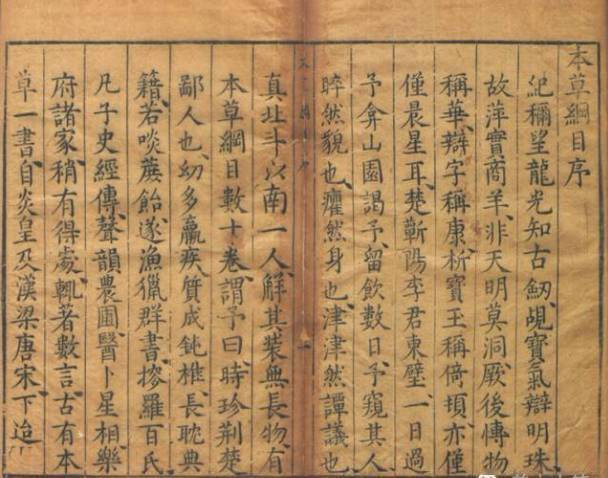 本草綱目序
紀稱望龍光知古劒覘寶氣辯明珠
故萍實商羊非天明莫洞厥後博物
稱華辯字稱康析寶玉稱倚頓亦僅
僅晨星耳楚蘄陽李君東璧一日過
予弇山園謁予留飲數日予窺其人
睟然貌也癯然身也津津然譚議也
真北斗以南一人解其裝無長物有
本草綱目數十卷謂予曰時珍荆楚
鄙人也幼多羸疾質成鈍椎長耽典
籍若啖蔗飴遂漁獵群書搜羅百氏
凡子史經傳聲韻農圃醫卜星相樂
府諸家稍有得處輒著數言古有本
草一書自炎皇及漢梁唐宋下迨